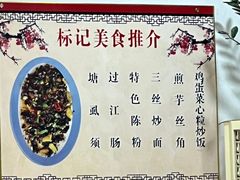 标记美食推介
塘虱须
过江肠
特色陈粉
三丝炒面
煎芋丝角
鸡蛋菜心粒炒饭